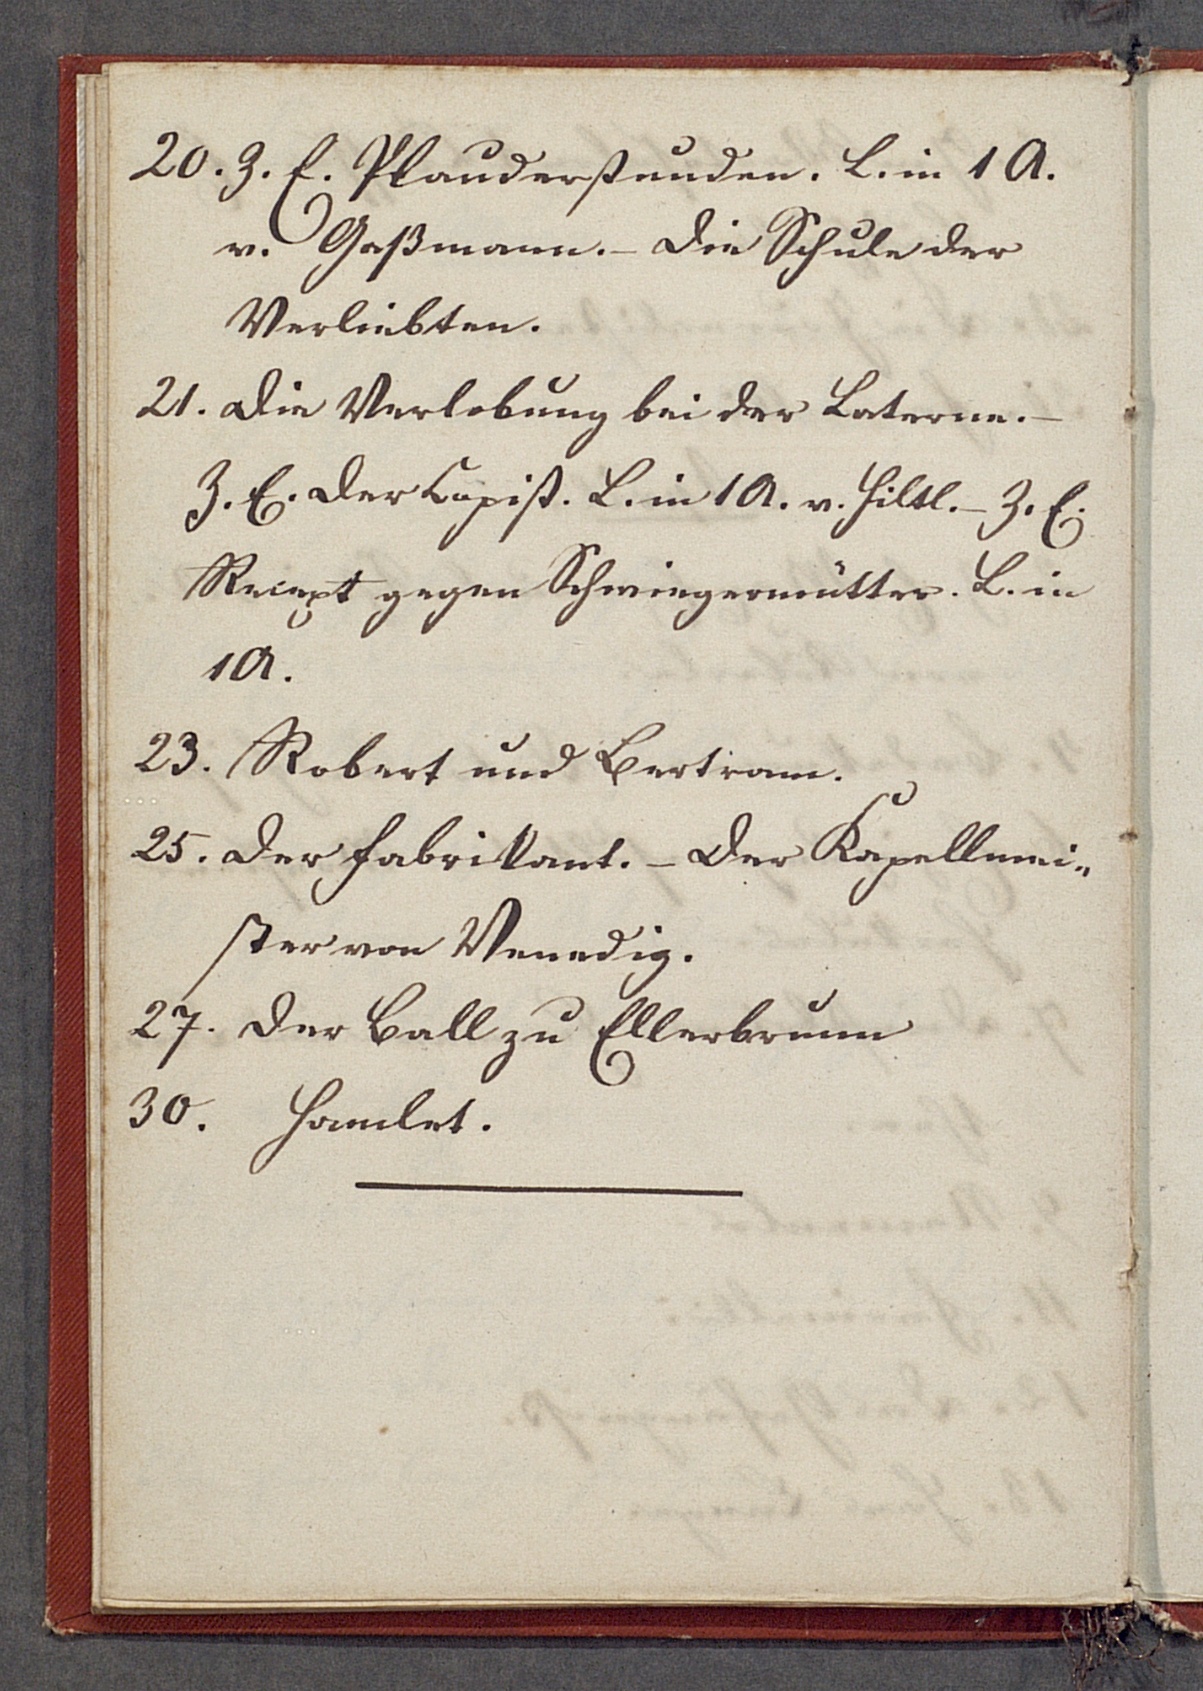 20. Z. E. Plauderstunden. L. in 1 A.
v. Gaßmann. – Die Schule der
Verliebten.
21. Die Verlobung bei der Laterne. –
Z. E. Der Copist. L. in 1 A. v. Hiltl. – Z. E.
Recept gegen Schwiegermütter. L. in
1 A.
23. Robert und Bertram.
25. Der Fabrikant. – Der Kapellmei„
ster von Venedig.
27. Der Ball zu Ellerbrunn
30. Hamlet.